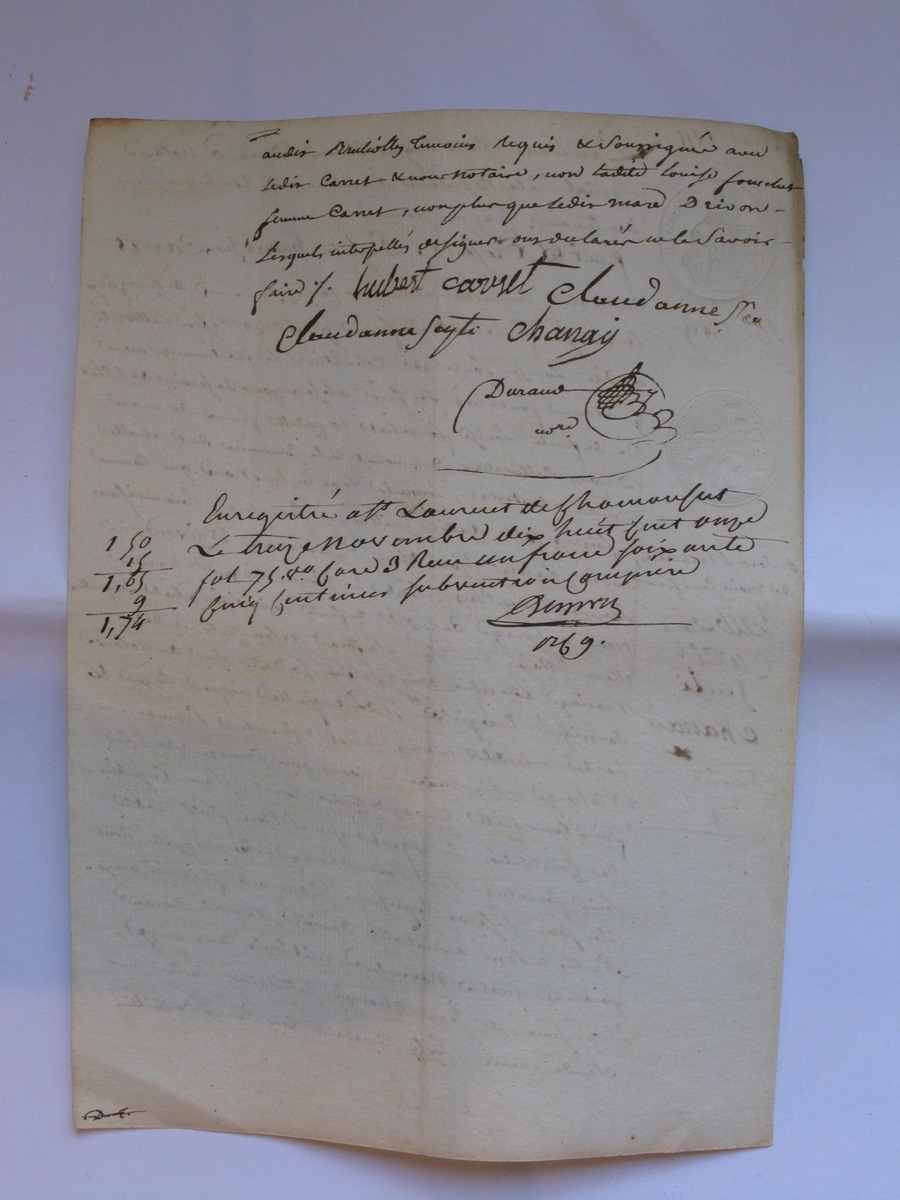 audit Brulliolles temoins requis & soussignés avec
ledit Carret & nous notaire, non ladite Louise fouchet
femme Carret, non plus que ledit mare Drivon
lesquels interpellés de signer ont declarés ne le savoir
faire /. hubert carret Claudanne
Claudanne Chanay
Durand
nore
Enregistré a St Laurent de Chamousset
Le treize novembre dix huit cent onze
fol 75 vo Case 3 Recu un franc soixante
cinq centimes subvention comprise
1 50
15
1,65
9
1,74